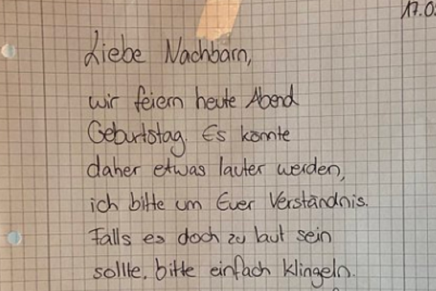 17.0
Liebe Nachbarn,
wir feiern heute Abend
Geburtstag. Es könnte
daher etwas lauter werden,
ich bitte um Euer Verständnis.
Falls es doch zu laut sein
sollte, bitte einfach klingeln.